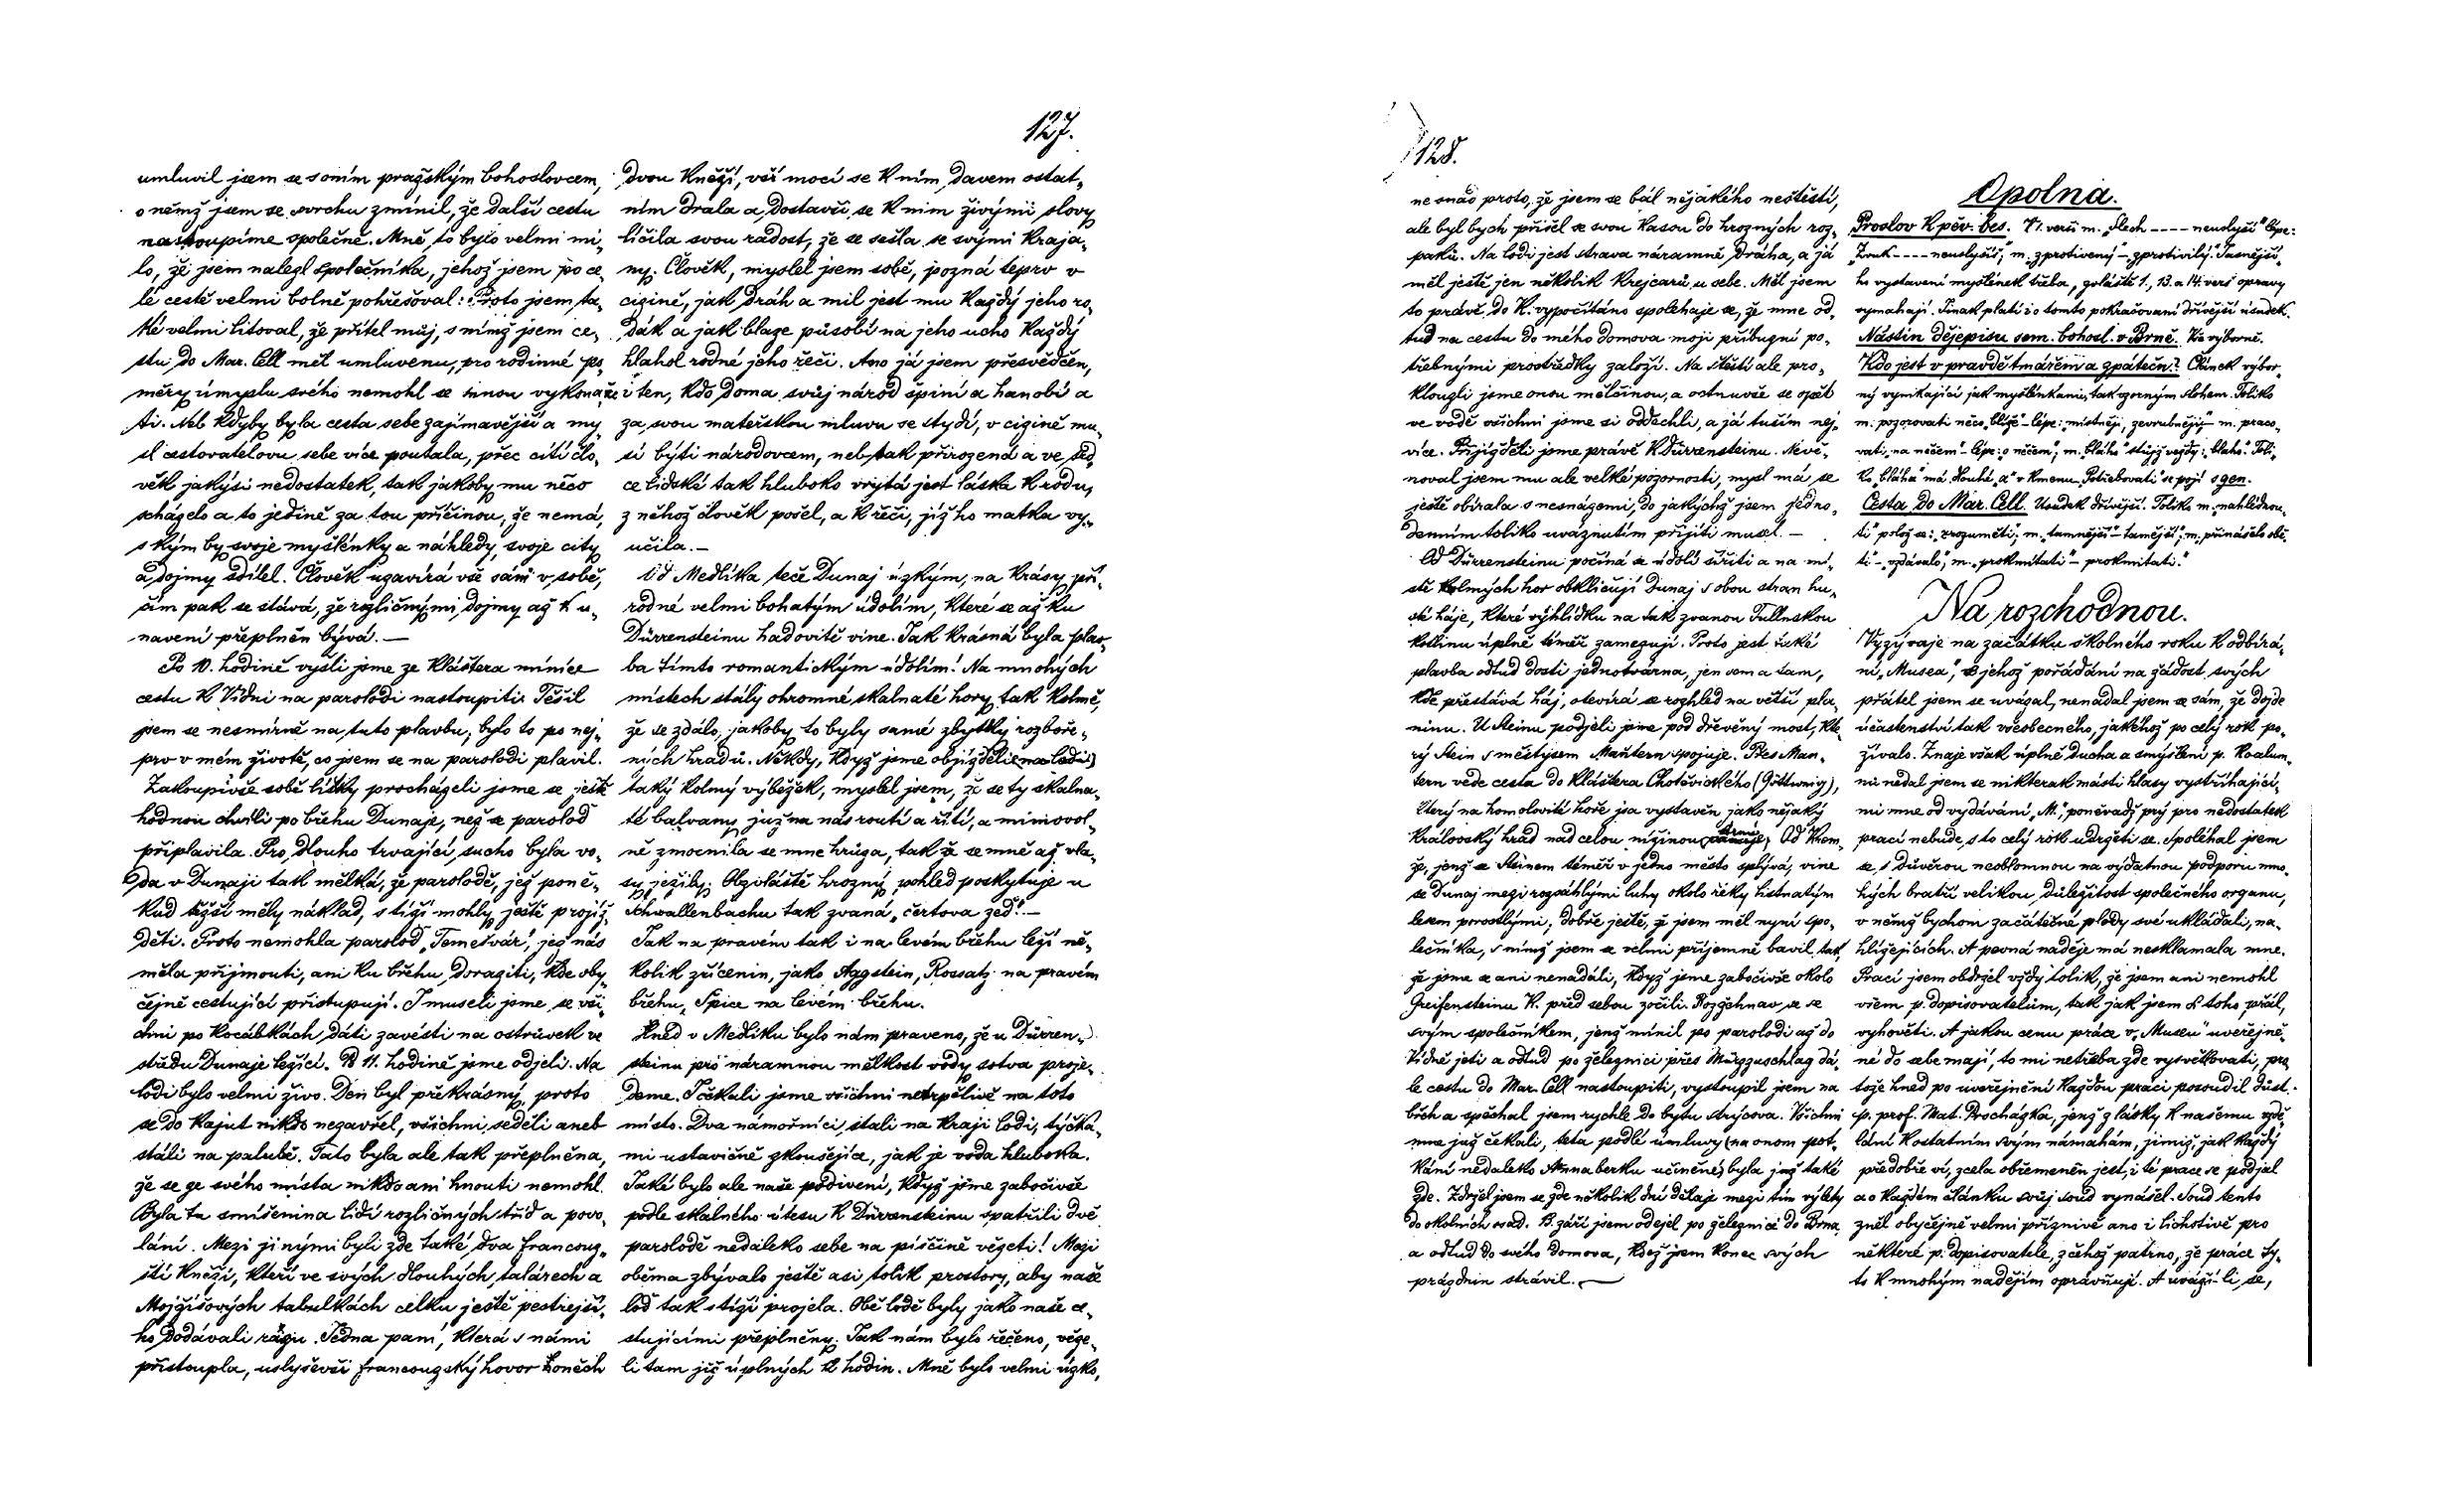 127.
umluvil jsem se s oním pražským bohoslovcem,
o němž jsem se svrchu zmínil, že další cestu
nastoupíme společně. Mně to bylo velmi mi-
lo, že jsem nalezl společníka, jehož jsem po ce-
lé cestě velmi bolně pohřešoval: Proto jsem ta-
ké velmi litoval, že přítel můj, s nímž jsem ce-
stu do Mar. Cell měl umluvenu, pro rodinné po-
měry úmyslu svého nemohl se mnou vykona-
ti. Neb kdyby byla cesta sebe zajímavější a my-
sl cestovatelovu sebe více poutala, přec cítí člo-
věk jakýsi nedostatek, tak jakoby mu něco
scházelo a to jedině za tou příčinou, že nemá,
s kým by svoje myšlénky a náhledy, svoje city
a dojmy sdílel. Člověk uzavírá vše sám v sobě,
čím pak se stává, že rozličnými dojmy až k u-
navení přeplněn bývá. —
Po 10. hodině vyšli jsme ze kláštera míníce
cestu k Vídni na parolodi nastoupiti. Těšil
jsem se nesmírně na tuto plavbu, bylo to po nej-
prv v mém životě, co jsem se na parolodi plavil.
Zakoupivše sobě lístky procházeli jsme se ještě
hodnou chvíli po břehu Dunaje, než se paroloď
připlavila. Pro dlouho trvající sucho byla vo-
da v Dunaji tak mělká, že parolodě, jež poně-
kud těžší měly náklad, s tíží mohly ještě projíž-
děti. Proto nemohla paroloď „Temešvár", jež nás
měla přijmouti, ani ku břehu doraziti, kde oby-
čejně cestující přistupují. I museli jsme se vši-
chni po kocábkách dáti zavésti na ostrůvek ve
středu Dunaje ležící. O 11. hodině jsme odjeli. Na
lodi bylo velmi živo. Den byl překrásný, proto
se do kajut nikdo nezavřel, všichni seděli aneb
stáli na palubě. Tato byla ale tak přeplněna,
že se ze svého místa nikdo ani hnouti nemohl.
Byla tu smíšenina lidí rozličných tříd a povo-
lání. Mezi jinými byli zde také dva francouz-
ští kněží, kteří ve svých dlouhých talárech a
Mojžíšových tabulkách celku ještě pestřejší-
ho dodávali rázu. Jedna paní, která s námi
přistoupla, uslyševši francouzský hovor oněch
dvou kněží, vší mocí se k nim davem ostat-
ním drala a dostavši se k nim živými slovy
líčila svou radost, že se sešla se svými kraja-
ny. Člověk, myslel jsem sobě, pozná teprv v
cizině, jak drah a mil jest mu každý jeho ro-
dák a jak blaze působí na jeho ucho každý
hlahol rodné jeho řeči. Ano já jsem přesvědčen,
že i ten, kdo doma svůj národ špiní a hanobí a
za svou mateřskou mluvu se stydí, v cizině mu-
sí býti národovcem, neb tak přirozená a ve srd-
ce lidské tak hluboko vrytá jest láska k rodu,
z něhož člověk pošel, a k řeči, jíž ho matka vy-
učila. —
Od Medlíka teče Dunaj úzkým, na krásy pří-
rodné velmi bohatým údolím, které se až ku
Dürrensteinu hadovitě vine. Jak krásná byla plav-
ba tímto romantickým údolím! Na mnohých
místech stály ohromné skalnaté hory tak kolmě,
že se zdálo, jakoby to byly samé zbytky rozboře-
ných hradů. Někdy, když jsme objížděli (na lodi)
taký kolmý výběžek, myslel jsem, že se ty skalna-
té balvany již na nás routí a řítí, a mimovol-
ně zmocnila se mne hrůza, tak že se mně až vla-
sy ježily. Obzvláště hrozný pohled poskytuje u
Schwallenbachu tak zvaná „čertova zeď." —
Jak na pravém tak i na levém břehu leží ně-
kolik zřícenin, jako Aggstein, Rossatz na pravém
břehu, Špice na levém břehu.
Hned v Medlíku bylo nám praveno, že u Dürren-
steinu pro náramnou mělkost vody sotva proje-
deme. I čekali jsme všichni netrpělivě na toto
místo. Dva námořníci stáli na kraji lodi, týčka-
mi ustavičně zkoušejíce, jak je voda hluboka.
Jaké bylo ale naše podivení, když jsme zabočivše
podle skalného útesu k Dürrensteinu spatřili dvě
parolodě nedaleko sebe na písčině vězeti! Mezi
oběma zbývalo ještě asi tolik prostory, aby naše
loď tak s tíží projela. Obě lodě byly jako naše ce-
stujícími přeplněny. Jak nám bylo řečeno, věze-
li tam již úplných 12 hodin. Mně bylo velmi úzko,
128.
ne snad proto, že jsem se bál nějakého neštěstí,
ale byl bych přišel se svou kasou do hrozných roz-
paků. Na lodi jest strava náramně drahá, a já
měl ještě jen několik krejcarů u sebe. Měl jsem
to právě do K. vypočítáno spoléhaje se, že mne od-
tud na cestu do mého domova moji příbuzní po-
třebnými prostředky založí. Na štěstí ale pro-
klouzli jsme onou mělčinou, a octnuvše se opět
ve vodě všichni jsme si oddechli, a já tuším nej-
více. Přijížděli jsme právě k Dürrensteinu. Nevě-
noval jsem mu ale velké pozornosti, mysl má se
ještě obírala s nesnázemi, do jakýchž jsem jedno-
denním toliko uváznutím přijíti musel. —
Od Dürrensteinu počíná se údolí šířiti a na mí-
stě kolmých hor obkličují Dunaj s obou stran hu-
sté háje, které vyhlídku na tak zvanou Tullnskou
kotlinu úplně téměř zamezují. Proto jest také
plavba odtud dosti jednotvárna, jen sem a tam,
kde přestává háj, otevírá se rozhled na větší pla-
ninu. U Steinu podjeli jsme pod dřevěný most, kte-
rý Stein s městysem Mautern spojuje. Přes Mau-
tern vede cesta do kláštera Chotěvického (Göttweig),
který na homolovité hoře jsa vystavěn jako nějaký
královský hrad nad celou nížinou trůní. Od Krem-
že, jenž se Steinem téměř v jedno město splývá, vine
se Dunaj mezi rozsáhlými luhy okolo řeky listnatým
lesem porostlými; dobře ještě, že jsem měl nyní spo-
lečníka, s nímž jsem se velmi příjemně bavil tak,
že jsme se ani nenadáli, když jsme zabočivše okolo
Greifensteinu K. před sebou zočili. Rozžehnav se se
svým společníkem, jenž mínil po parolodi až do
Vídně jeti a odtud po železnici přes Mürzzuschlag dá-
le cestu do Mar. Cell nastoupiti, vystoupil jsem na
břeh a spěchal jsem rychle do bytu strýcova. Všichni
mne již čekali, teta podlé úmluvy (na onom pot-
kání nedaleko Annaberku učiněné) byla již také
zde. Zdržel jsem se zde několik dní dělaje mezi tím výlety
do okolních osad. 13. září jsem odejel po železnici do Brna
a odtud do svého domova, kdež jsem konec svých
prázdnin strávil. —
Opolna.
Proslov k pěv. bes. 71. verš m. „Slech ---- neuslyší" lépe:
„Zvuk ---- neuslyšíš"; m. „zprotivený" – „zprotivilý." Jasnější-
ho vystavení myšlének třeba, zvláště 1., 13. a 14. verš opravy
vymahají. Jinak platí i o tomto pokračovaní dřívější úsudek.
Nástin dějepisu sem. bohosl. v Brně. Vše výborně.
Kdo jest v pravdě tmářem a zpátečn.? Článek výbor-
ný vynikající jak myšlénkami, tak vzorným slohem. Toliko
m. pozorovati něco „blíže" – lépe: „místněji, zevrubněji;" m. praco-
vati „na něčem" – lépe: o něčem"; m. „bláhu" stůjž vezdy: „blaho." Toli-
ko „bláha" má dlouhé „a" v kmenu. „Potřebovati" se pojí s gen.
Cesta do Mar. Cell. Úsudek dřívější. Toliko m. „nahlédnou-
ti" polož se: „srozuměti"; m. „tamnější" – tamější"; m. přinášelo obě-
ti – „vzdávalo"; m. „prokmitati" – prokmitati."
Na rozchodnou.
Vyzývaje na začátku školného roku k odbírá-
ní „Musea", v jehož pořádání na žádost svých
přátel jsem se uvázal, nenadal jsem se sám, že dojde
účastenství tak všeobecného, jakéhož po celý rok po-
žívalo. Znaje však úplně ducha a smýšlení p. koalum-
nů nedal jsem se nikterak másti hlasy vystříhající-
mi mne od vydávání „M.", poněvadž prý pro nedostatek
prací nebude s to celý rok udržeti se. Spoléhal jsem
se s důvěrou neoblomnou na vydatnou podporu mno-
hých bratří velikou důležitost společného organu,
v němž bychom začátečné plody své ukládali, na-
hlížejících. A pevná naděje má nesklamala mne.
Prací jsem obdržel vždy tolik, že jsem ani nemohl
všem p. dopisovatelům, tak jak jsem si toho přál,
vyhověti. A jakou cenu práce v „Museu" uveřejně-
né do sebe mají, to mi netřeba zde vysvětlovati, pro-
tože hned po uveřejnění každou práci posoudil důst.
p. prof. Mat. Procházka, jenž z lásky k našemu vzdě-
lání k ostatním svým námahám, jimiž, jak každý
předobře ví, zcela obřemeněn jest, i té práce se podjal
a o každém článku svůj soud vynášel. Soud tento
zněl obyčejně velmi příznivě ano i lichotivě pro
některé p. dopisovatele, z čehož patrno, že práce ty-
to k mnohým nadějím opravňují. A uváží-li se,